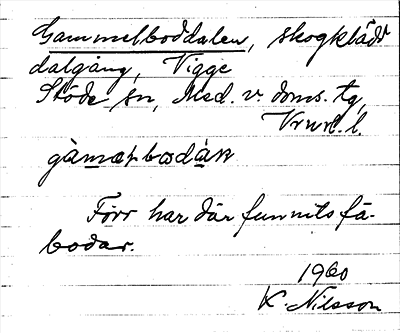 Gammelboddalen, skogklädd
dalgång, Vigge
Stöde sn, Med. v. doms. tg,
Vrwd. l.
gàmæɫbωdàᴌn
Förr har där funnits fä-
bodar.
1960
K. Nilsson